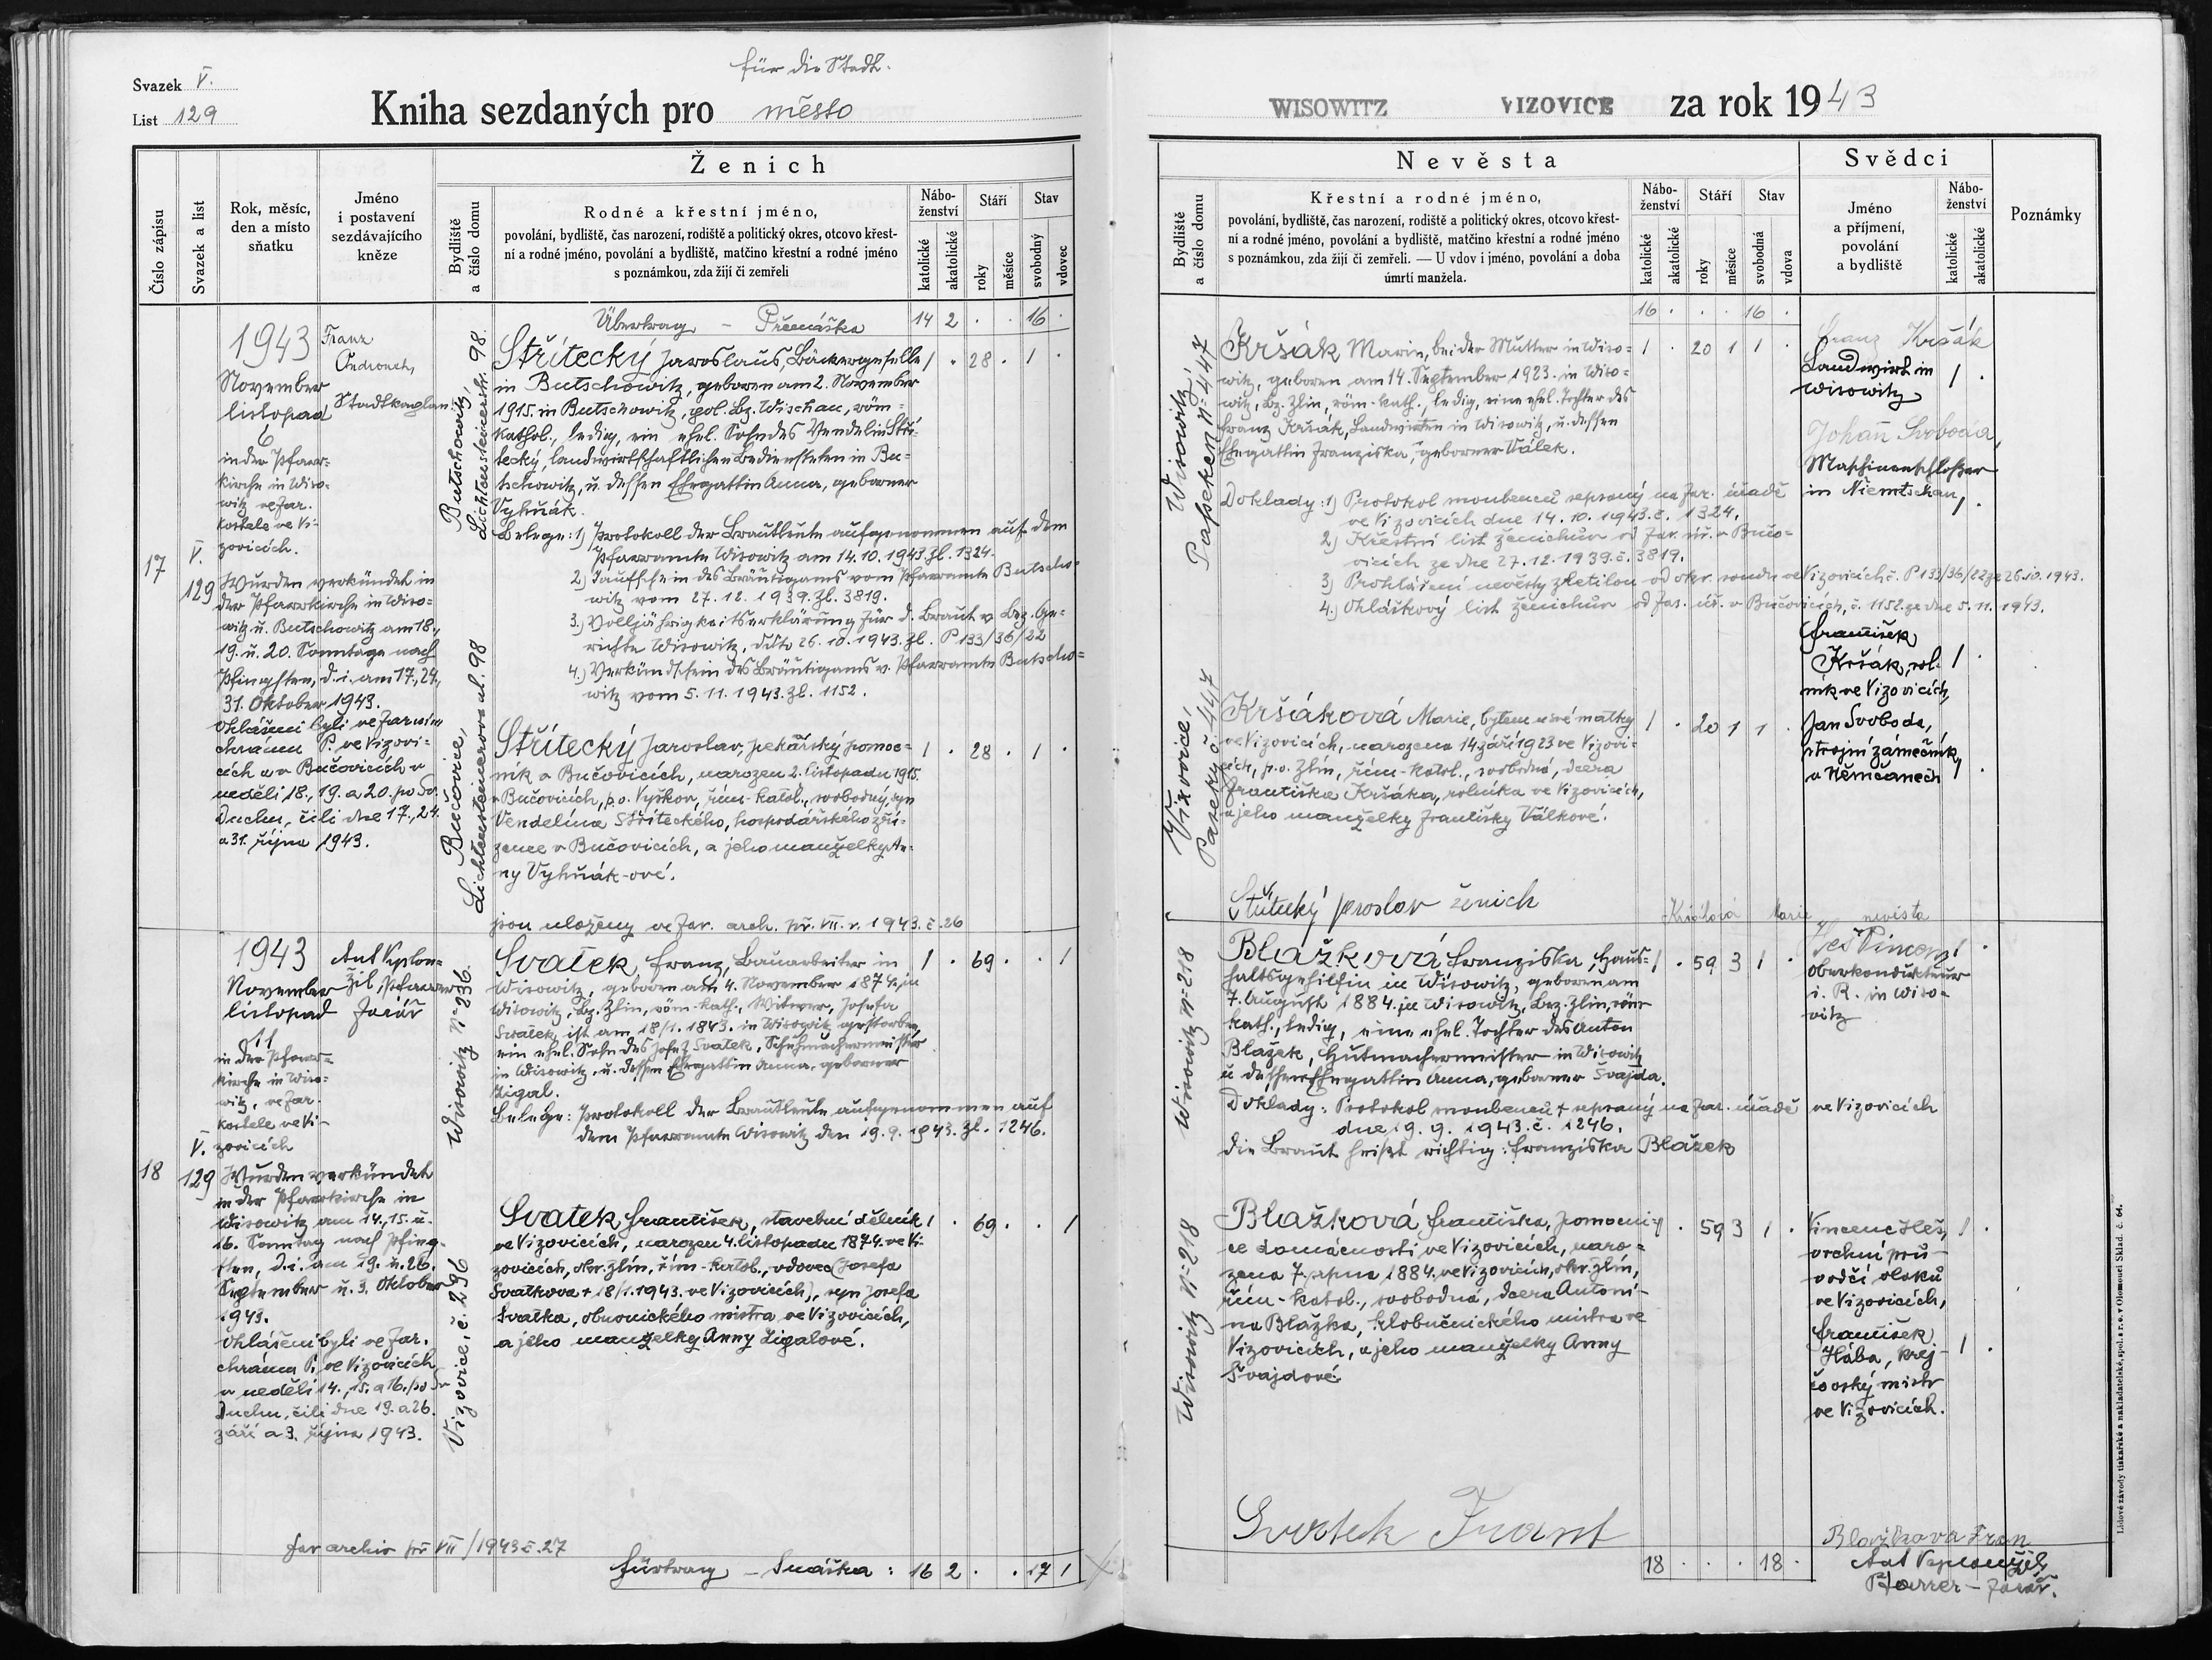 für die Stadt.
Svazek V.
List 129
Kniha sezdaných pro město
Číslo zápisu
Svazek a list
Rok, měsíc,
den a místo
sňatku
Jméno
i postavení
sezdávajícího
kněze
Ženich
Bydliště
a číslo domu
Rodné a křestní jméno,
povolání, bydliště, čas narození, rodiště a politický okres, otcovo křest-
ní a rodné jméno, povolání a bydliště, matčino křestní a rodné jméno
s poznámkou, zda žijí či zemřeli
Nábo-
ženství
katolické
akatolické
Stáří
roky
měsíce
Stav
svobodný
vdovec
Übertrag – Přenáška 14 2 . . 16 .
1943
November
listopad
6
in der Pfarr-
kirche in Wiso-
witz ve far.
kostele ve Vi-
zovicích.
17
V.
129
Wurden verkündet in
der Pfarrkirche in Wiso-
witz u. Butschowitz am 18.,
19. u. 20. Sonntage nach
Pfingsten, d. i. am 17., 24.,
31. Oktober 1943.
Ohlášeni byli ve farním
chrámu P. ve Vizovi-
cích a v Bučovicích v
neděli 18., 19. a 20. po Sv.
Duchu, čili dne 17., 24.
a 31. října 1943.
Franz
Stadtkaplan
Butschowitz,
Lichtensteinerstr. 98.
Střítecký Jaroslaus, Bäckergeselle 1 . 28 . 1 .
in Butschowitz, geboren am 2. November
1915. in Butschowitz, pol. Bz. Wischau, röm-
kathol., ledig, ein ehel. Sohn des Vendelin Stří-
tecký, landwirtschaftlichen Bediensteten in Bu-
tschowitz, u. dessen Ehegattin Anna, geborner
Vyhňák.
Belege: 1) Protokoll der Brautleute aufgenommen auf dem
Pfarramte Wisowitz am 14.10.1943 Zl. 1324.
2) Taufschein des Bräutigams vom Pfarramte Butscho-
witz vom 27.12.1939. Zl. 3819.
3.) Volljährigkeitserklärung für d. Braut v. Bez. Ge-
richte Wisowitz, dto 26.10.1943. Zl. P 133/36/22
4.) Verkündschein des Bräutigams v. Pfarramte Butscho-
witz vom 5.11.1943. Zl. 1152.
Bučovice,
Lichtensteinerova ul. 98
Střítecký Jaroslav, pekařský pomoc- 1 . 28 . 1 .
ník v Bučovicích, narozen 2. listopadu 1915.
v Bučovicích, p. o. Vyškov, řím-katol., svobodný, syn
Vendelína Stříteckého, hospodářského zří-
zence v Bučovicích, a jeho manželky An-
ny Vyhňák-ové.
jsou uloženy ve far. arch. př. VII. r. 1943. č. 26
1943
November
listopad
11
in der Pfarr-
kirche in Wiso-
witz, ve far.
kostele ve Vi-
zovicích
18
V.
129
Wurden verkündet
in der Pfarrkirche in
Wisowitz am 14., 15. u.
16. Sonntag nach Pfing-
sten, d. i. am 19. u. 26.
September u. 3. Oktober
1943.
Ohlášeni byli ve far.
chrámu P. ve Vizovicích
v neděli 14., 15. a 16. po Sv
Duchu, čili dne 19. a 26.
září a 3. října 1943.
Pfarrer
farář
Wisowitz Nº 236.
Svatek, Franz, Bauarbeiter in 1 . 69 . . 1
Wisowitz, geboren am 4. November 1874. in
Wisowitz, Bz. Zlin, röm-kath., Witwer, Josefa
Svatek, ist am 18/1. 1843. in Wisowitz gestorben,
ein ehel. Sohn des Josef Svatek, Schuhmachermeister
in Wisowitz, u. dessen Ehegattin Anna, geborner
Zigal.
Belege: Protokoll der Brautleute aufgenommen auf
dem Pfarramte Wisowitz den 19. 9. 1943. Zl. 1246.
Vizovice, č. 296
Svatek František, stavební dělník 1 . 69 . . 1
ve Vizovicích, narozen 4. listopadu 1874. ve Vi-
zovicích, okr. Zlín, řím-katol., vdovec (Josefa
Svatkova + 18/1. 1943. ve Vizovicích), syn Josefa
Svatka, obuvnického mistra ve Vizovicích,
a jeho manželky Anny Zigalové.
far archiv př VII/1943 č. 27
Fürtrag – Snáška : 16 2 . . 17 1
WISOWITZ VIZOVICE za rok 1943
Nevěsta
Bydliště
a číslo domu
Křestní a rodné jméno,
povolání, bydliště, čas narození, rodiště a politický okres, otcovo křest-
ní a rodné jméno, povolání a bydliště, matčino křestní a rodné jméno
s poznámkou, zda žijí či zemřeli. — U vdov i jméno, povolání a doba
úmrtí manžela.
Nábo-
ženství
katolické
akatolické
Stáří
roky
měsíce
Stav
svobodná
vdova
Svědci
Jméno
a příjmení,
povolání
a bydliště
Nábo-
ženství
katolické
akatolické
Poznámky
16 . . . 16 .
Wisowitz,
Paseken Nº 447
Kršák Marie, bei der Mutter in Wiso- 1 . 20 1 1 .
witz, geboren am 14. September 1923. in Wiso-
witz, Bz. Zlin, röm-kath., ledig, eine ehel. Tochter des
Franz Kršák, Landwirten in Wisowitz, u. dessen
Ehegattin Franziska, geborner Válek.
Doklady: 1) Protokol snoubenců sepsaný na far. úřadě
ve Vizovicích dne 14.10.1943. č. 1324.
2.) Křestní list ženichův od far. úř. v Bučo-
vicích ze dne 27.12.1939. č. 3819.
3) Prohlášení nevěsty zletilou od okr. soudu ve Vizovicích č. P 133/36/22 ze 26.10.1943.
4.) Ohláškový list ženichův od far. úř. v Bučovicích, č. 1152. ze dne 5.11.1943.
Franz Kršák
Landwirt in
Wisowitz 1 .
Johann Svoboda,
Maschinenschlosser
in Niemtschan 1 .
František
Kršák, rol- 1 .
ník ve Vizovicích,
Jan Svoboda,
strojní zámečník
v Němčanech 1 .
Vizovice,
Paseky č. 447
Kršáková Marie, bytem u své matky 1 . 20 1 1 .
ve Vizovicích, narozena 14. září 1923 ve Vizovi-
cích, p. o. Zlín, řím-katol., svobodná, dcera
Františka Kršáka, rolníka ve Vizovicích,
a jeho manželky Františky Válkové.
Střítecký Jaroslav ženich
Kršáková Marie nevěsta
Wisowitz Nº 218
Blažková Franziska, Haus- 1 . 59 3 1 .
haltsgehilfin in Wisowitz, geboren am
7. August 1884. in Wisowitz, Bez. Zlin, röm-
kath., ledig, eine ehel. Tochter des Anton
Blažek, Hutmachermeister in Wisowitz
u. dessen Ehegattin Anna, geborner Švajda.
Doklady: Protokol snoubenců sepsaný na far. úřadě ve Vizovicích
dne 19. 9. 1943. č. 1246.
Die Braut heißt richtig: Franziska Blažek
Heš Vincenz 1 .
Oberkondukteur
i. R. in Wiso-
witz
Wisowitz Nº 218
Blažková Františka, pomocni- 1 . 59 3 1 .
ce domácnosti ve Vizovicích, naro-
zena 7. srpna 1884. ve Vizovicích, okr. Zlín,
řím-katol., svobodná, dcera Antoní-
na Blažka, kloboučnického mistra ve
Vizovicích, a jeho manželky Anny
Švajdové.
Vincenc Heš, 1 .
vrchní prů-
vodčí vlaků
ve Vizovicích,
František
Hába, krej- 1 .
čovský mistr
ve Vizovicích.
Svatek Frant
Blažkova Fran
18 . . . 18 .
Pfarrer – farář.
Lidové závody tiskařské a nakladatelské, spol. s r. o. v Olomouci Sklad. č. 64.